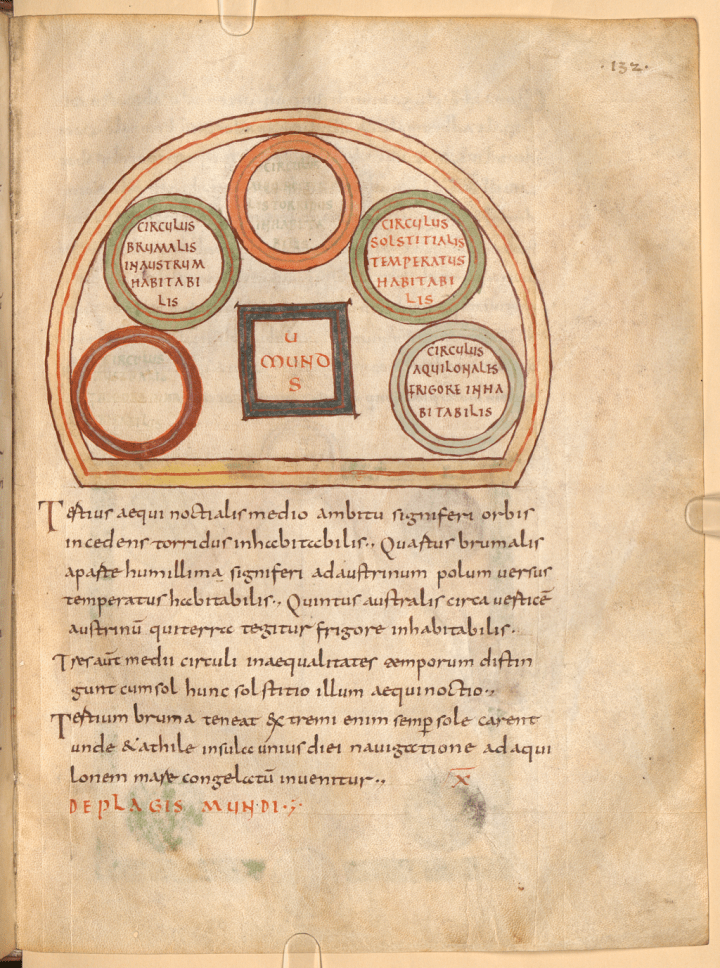 ·132·
CIRCULUS
BRUMALIS
INAUSTRUM
HABITABI
LIS
CIRCULUS
SOLSTITIALIS
TEMPERATUS
HABITABI
LIS
U
MUND
S
CIRCULUS
AQUILONALIS
FRIGORE INHA
BITABILIS
Tertius aequinoctialis medio ambitu signiferi orbis
incedens torridus inhabitabilis·, Quartus brumalis
aparte humillima signiferi adaustrinum polum versus
temperatus habitabilis·, Quintus australis circa verticē
austrinū quiterra tegitur frigore inhabitabilis·
Tres aut̄ medii circuli inaequalitates temporum distin
gunt cumsol hunc solstitio illum aequinoctio·,
Tertium bruma teneat extremi enim semp̄ sole carent
unde &athile insula unius diei navigatione adaqui
lonem mare congelatū invenitur·,
X
DEPLAGIS MUNDI·;·